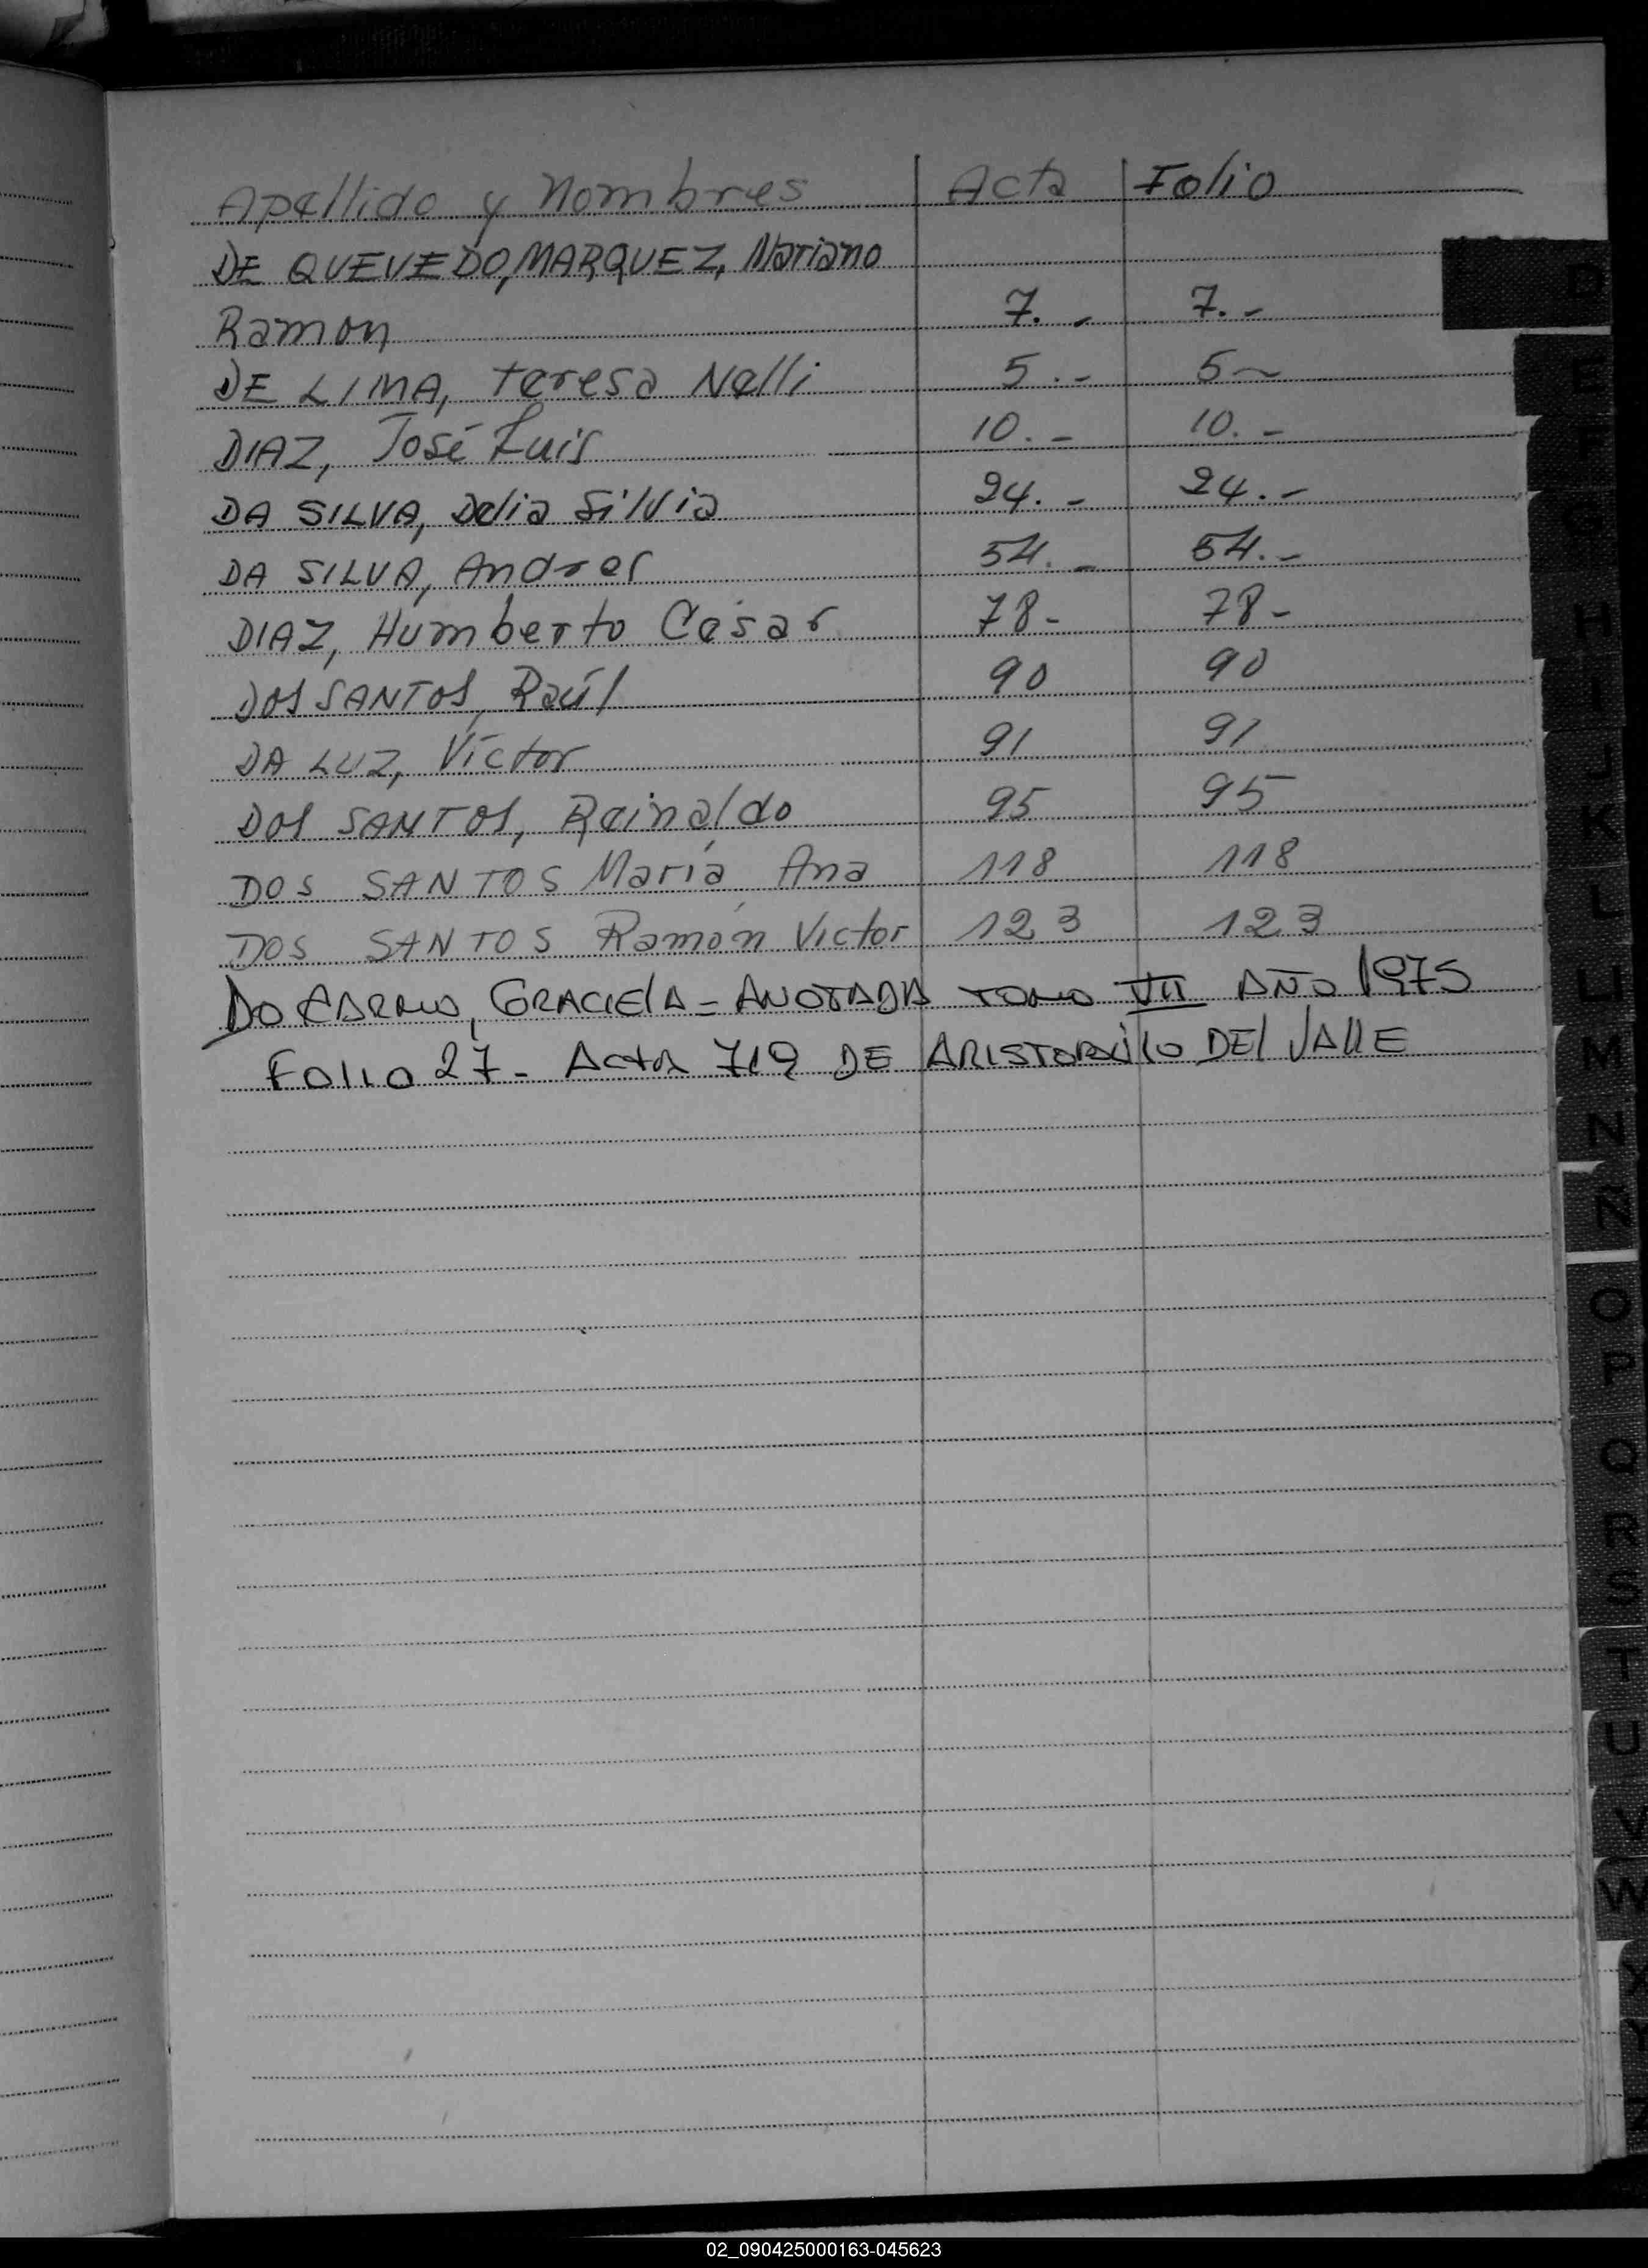 Apellido y Nombres Acta Folio
DE QUEVEDO, MARQUEZ, Mariano
Ramon 7.- 7.-
DE LIMA, Teresa Nelli 5.- 5-
DIAZ, José Luis 10.- 10.-
DA SILVA, Delia Silvia 24.- 24.-
DA SILVA, Andres 54.- 54.-
DIAZ, Humberto Cesar 78- 78-
DOS SANTOS, Raúl 90 90
DA LUZ, Víctor 91 91
DOS SANTOS, Reinaldo 95 95
DOS SANTOS María Ana 118 118
DOS SANTOS Ramón Victor 123 123
DO CARMO, GRACIELA - ANOTADA TOMO VII AÑO 1975
FOLIO 27 - ACTA 719 DE ARISTOBULO DEL VALLE
D
E
F
G
H
I
J
K
L
LL
M
N
Ñ
O
P
Q
R
S
T
U
V
W
X
Y
02_090425000163-045623